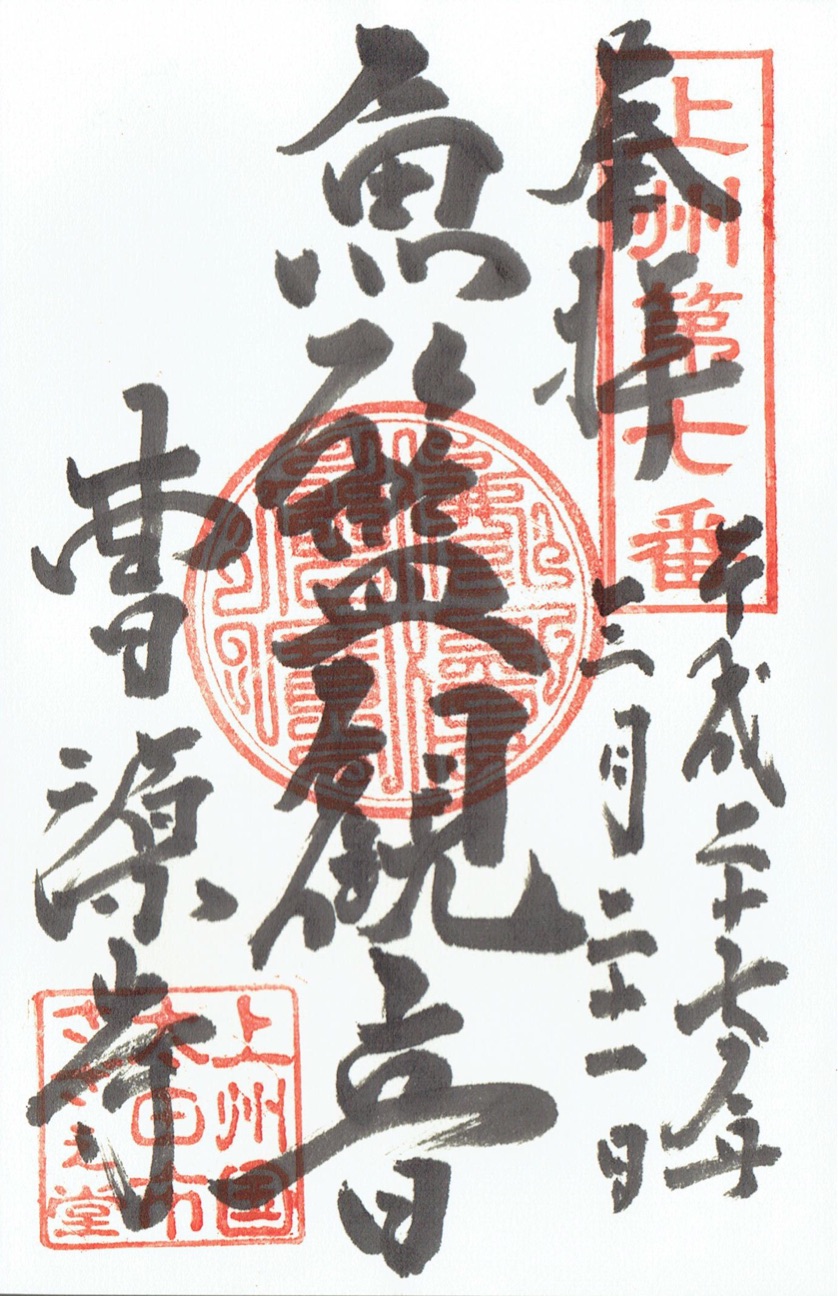 奉拝
上州第七番
平成二十七年
三月二十一日
魚籃観音
曹源寺
上州国
太田市
さざえ堂